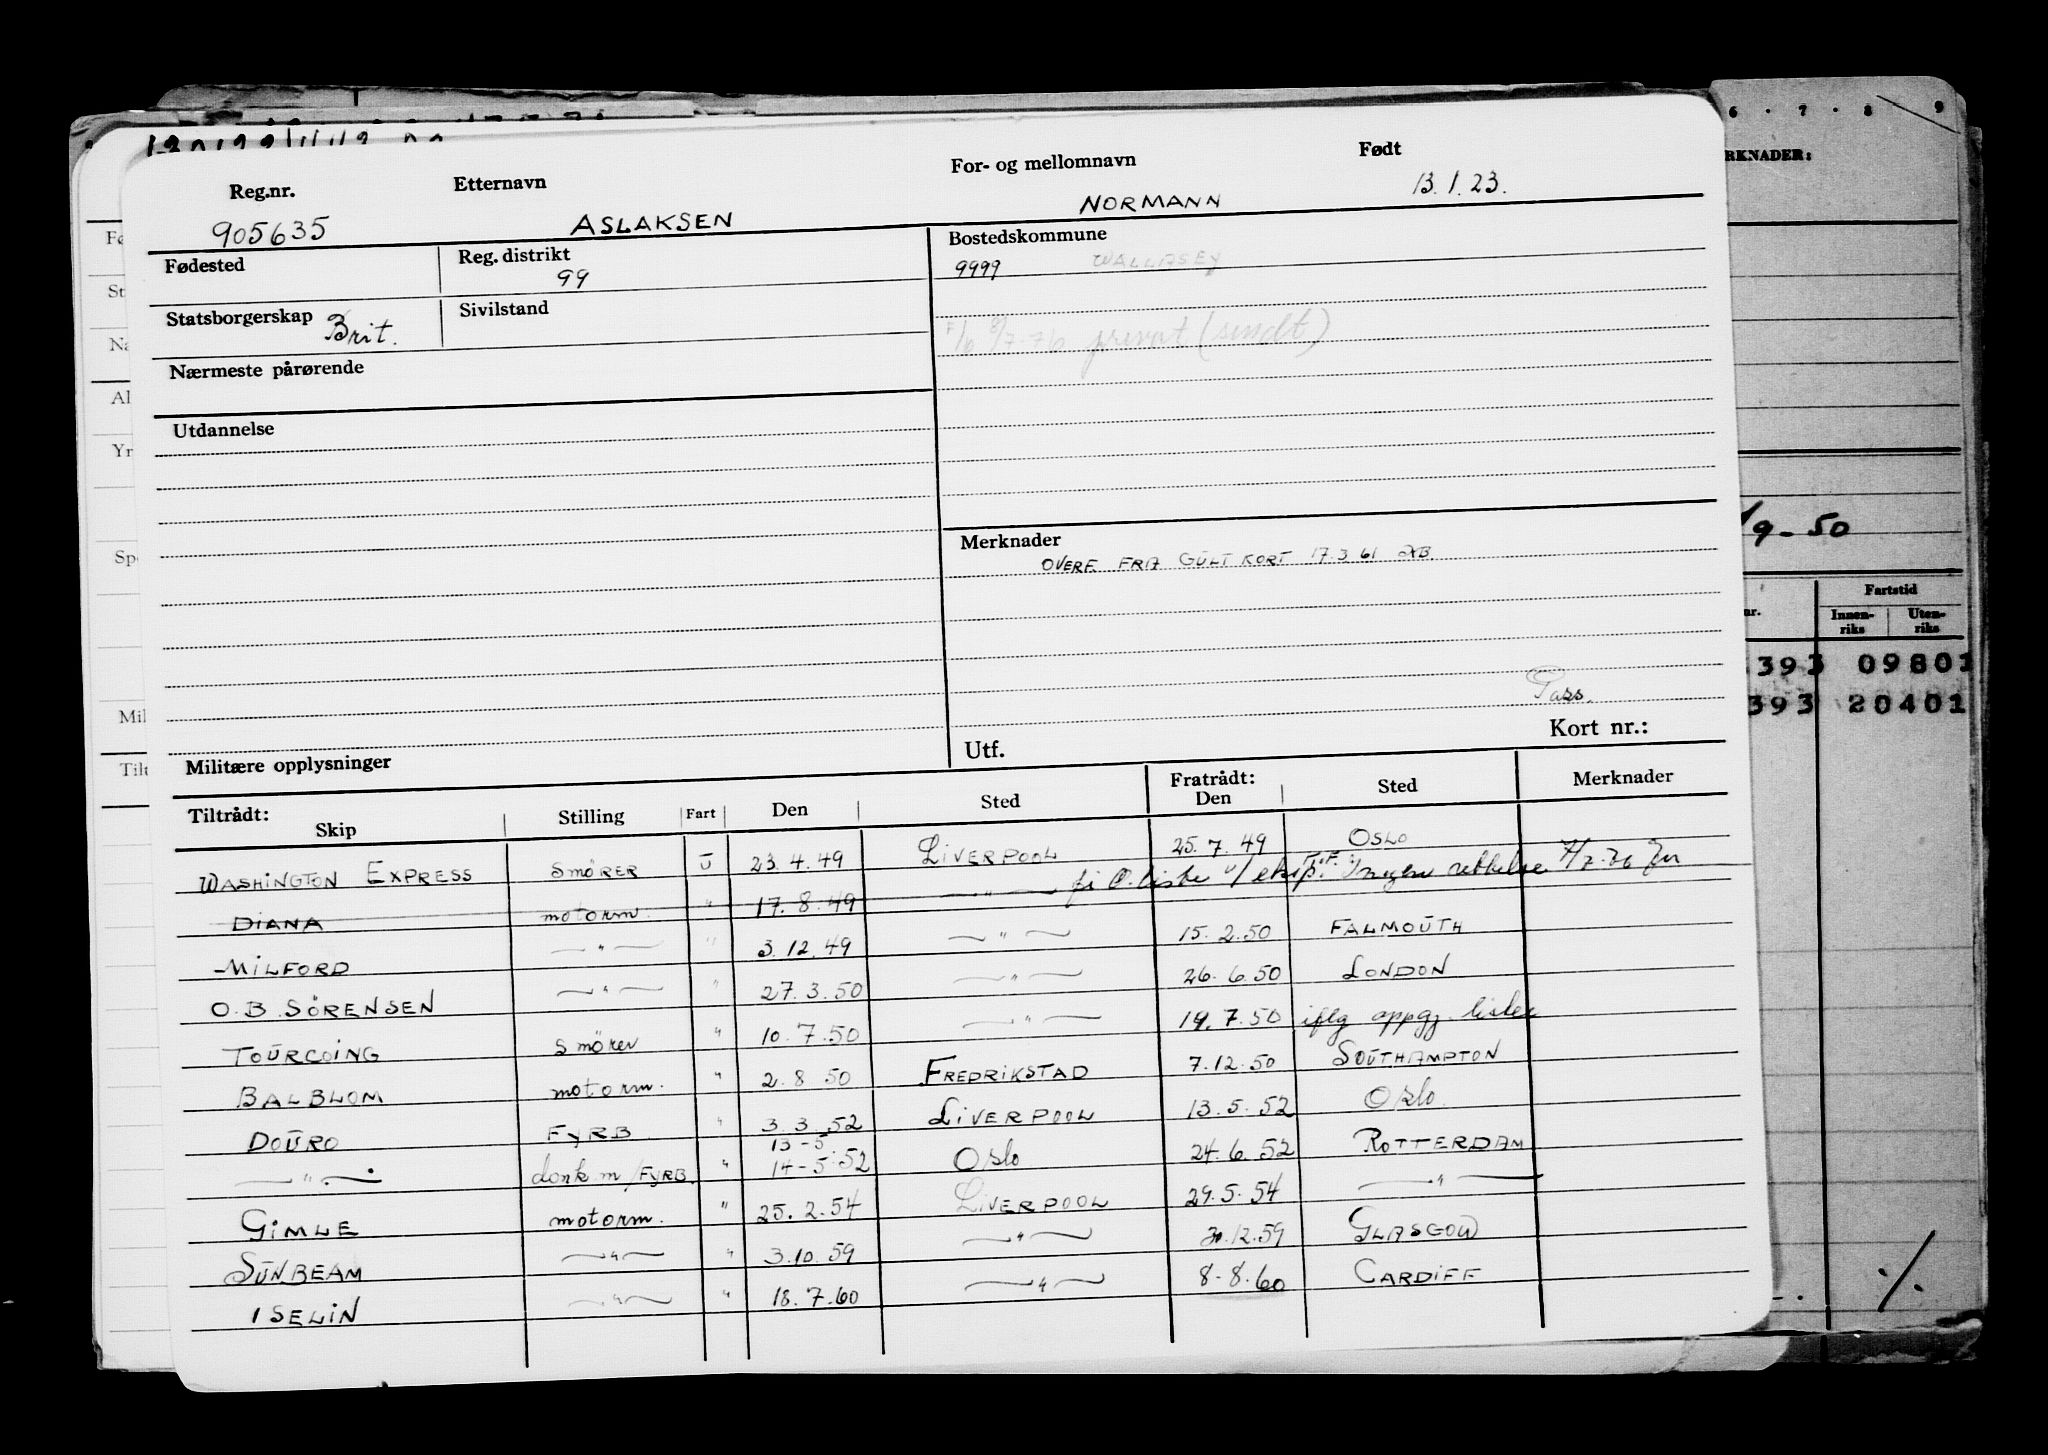 6 · 7 · 8 9
RKNADER:
Reg.nr. Etternavn For- og mellomnavn Født
905635 ASLAKSEN NORMANN 13.1.23.
Fødested Reg. distrikt 99 Bostedskommune
9999 WALLASEY
Statsborgerskap Brit. Sivilstand
8/7-76 privat (sendt)
Nærmeste pårørende
Utdannelse
Merknader
OVERF. FRA GULT KORT 17.3.61
Pass.
Militære opplysninger Utf. Kort nr.:
Tiltrådt: Skip Stilling Fart Den Sted Fratrådt: Den Sted Merknader
WASHINGTON EXPRESS SMÖRER U 23.4.49 LIVERPOOL 25.7.49 OSLO
DIANA motorm. " 17.8.49 —"— Ingen rettelse 7/7-76
MILFORD —"— " 3.12.49 —"— 15.2.50 FALMOUTH
O.B. SÖRENSEN —"— " 27.3.50 —"— 26.6.50 LONDON
TOURCOING Smörer " 10.7.50 —"— 19.7.50 iflg oppgj. lister
BALBLOM motorm. " 2.8.50 FREDRIKSTAD 7.12.50 SOUTHAMPTON
DOURO FYRB " 3.3.52 LIVERPOOL 13.5.52 Oslo.
13-5
—"— donk m/FYRB. " 14-5-52 Oslo 24.6.52 ROTTERDAM
GIMLE motorm. " 25.2.54 LIVERPOOL 29.5.54 —"—
SUNBEAM —"— " 3.10.59 —"— 31.12.59 GLASGOW
ISELIN —"— " 18.7.60 —"— 8-8.60 CARDIFF
Fø
St
Na
Al
Yr
Sp
Mil
Tilt
/9-50
nr. Fartstid
Innen-riks Uten-riks
393 09801
393 20401